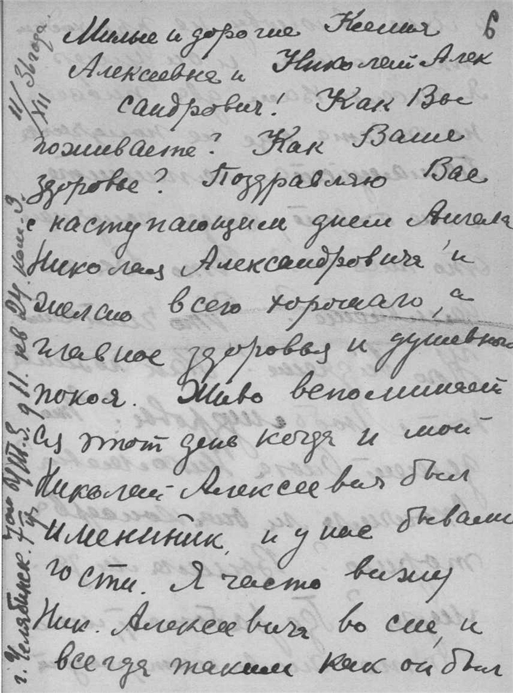 6
Милые и дорогие Ксения
Алексеевна и Николай Алек
сандрович. Как Вы
поживаете? Как Ваше
здоровье? Поздравляю Вас
с наступающим днем Ангела
Николая Александровича и
желаю всего хорошаго, а
главное здоровья и душевного
покоя. Живо вспоминает
ся этот день когда и мой
Николай Алексеевич был
имениник, и у нас бывали
гости. Я часто вижу
Ник. Алексеевича во сне, и
всегда таким как он был
11/XII 36 года
г. Челябинск. д 11. кв 24. ком. 9.